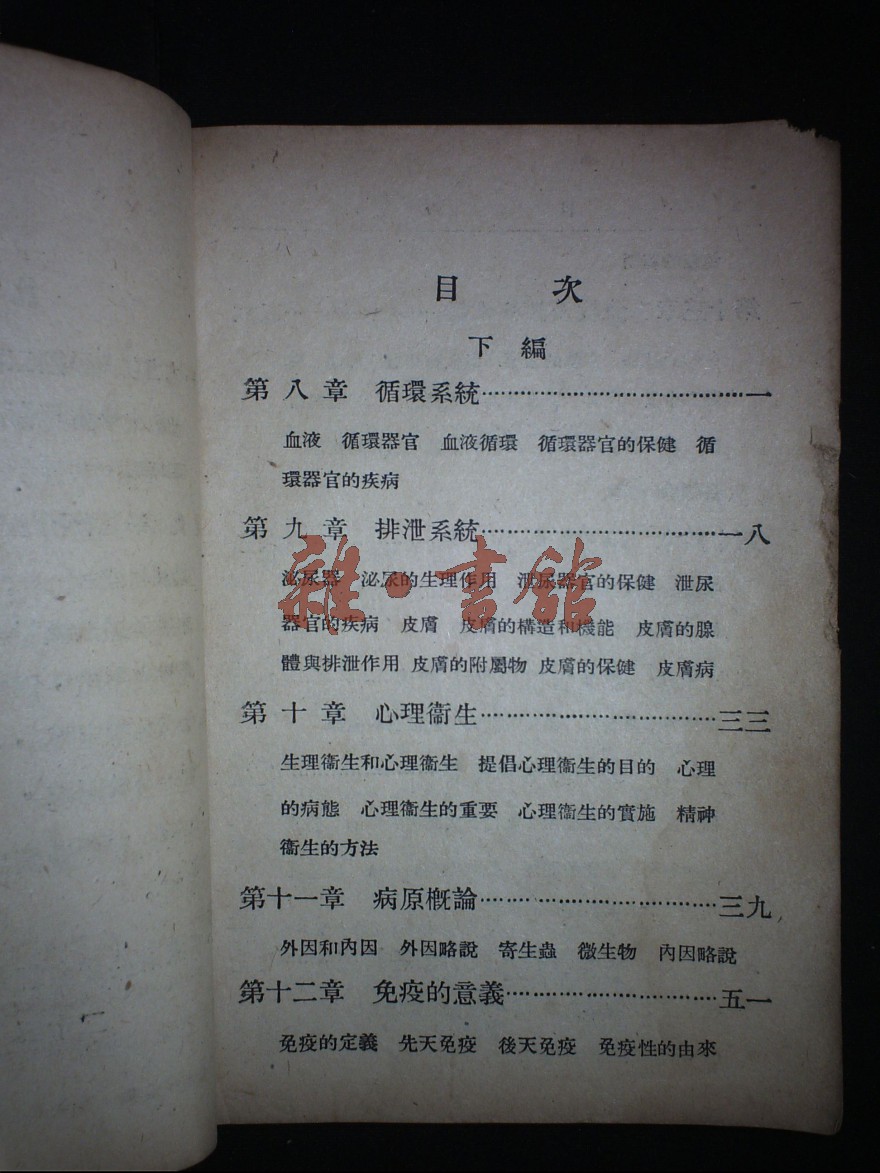 目 次
下 編
第 八 章 循環系統……………………………一
血液 循環器官 血液循環 循環器官的保健 循
環器官的疾病
第 九 章 排泄系統……………………………一八
泌尿器 泌尿的生理作用 泄尿器官的保健 泄尿
器官的疾病 皮膚 皮膚的構造和機能 皮膚的腺
體與排泄作用 皮膚的附屬物 皮膚的保健 皮膚病
雜·書館
第 十 章 心理衞生……………………………三三
生理衞生和心理衞生 提倡心理衞生的目的 心理
的病態 心理衞生的重要 心理衞生的實施 精神
衞生的方法
第十一章 病原概論……………………………三九
外因和內因 外因略說 寄生蟲 微生物 內因略說
第十二章 免疫的意義…………………………五一
免疫的定義 先天免疫 後天免疫 免疫性的由來